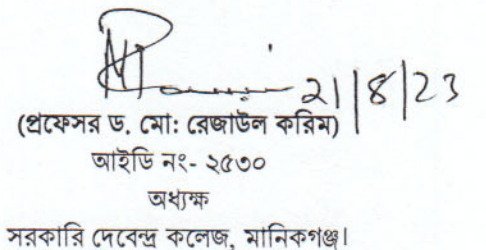 21/8/23
(প্রফেসর ড. মো: রেজাউল করিম)
আইডি নং- ২৫৩০
অধ্যক্ষ
সরকারি দেবেন্দ্র কলেজ, মানিকগঞ্জ।